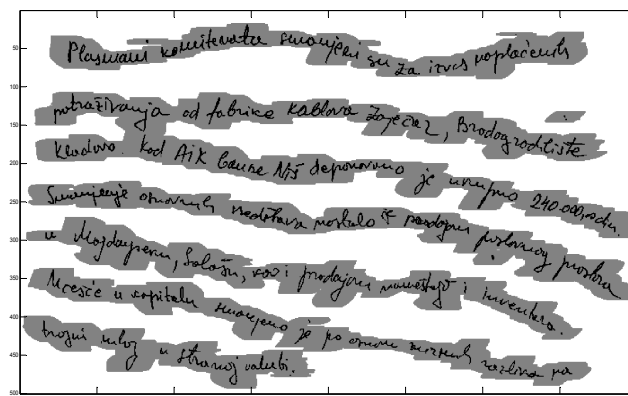 Plasmani komitenata smanjeni su za iznos naplaćenih
potraživanja od fabrike kablova Zaječar, Brodogradilište
Kladovo. Kod AIK banke Niš deponovano je ukupno 240.000,
Smanjenje osnovnih sredstava nastalo je prodajom poslovnog prostora
u Majdanpeku, Salašu, kao i prodajom nameštaja i inventara.
Učešće u kapitalu smanjeno je po osnovu kursnih razlika na
trajni ulog u stranoj valuti.